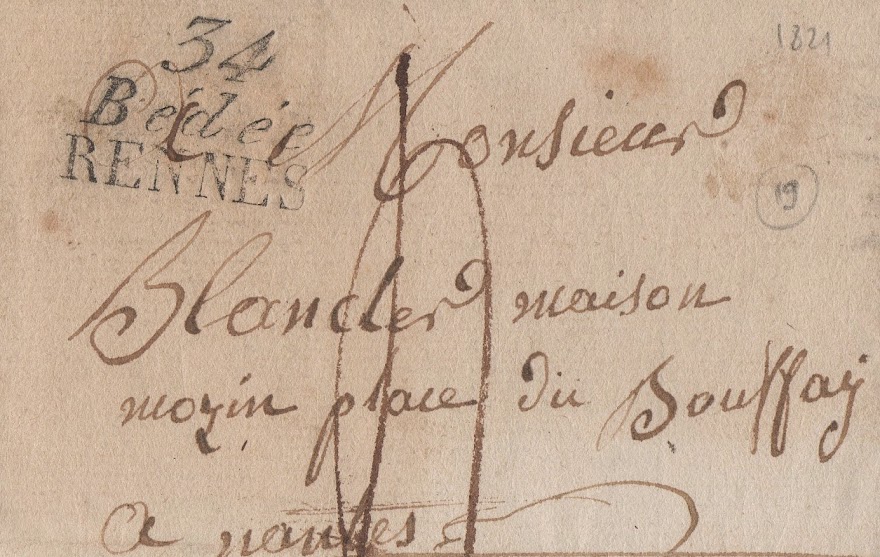 34
Bédée
RENNES
1821
Monsieur
19
Blancler maison
mozin place du Bouffay
a nantes